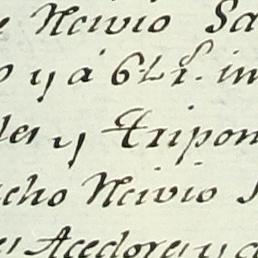 Neivio Sa
y á 6 L r.s in
les y Tripon
cho Neivio
es Acedores y